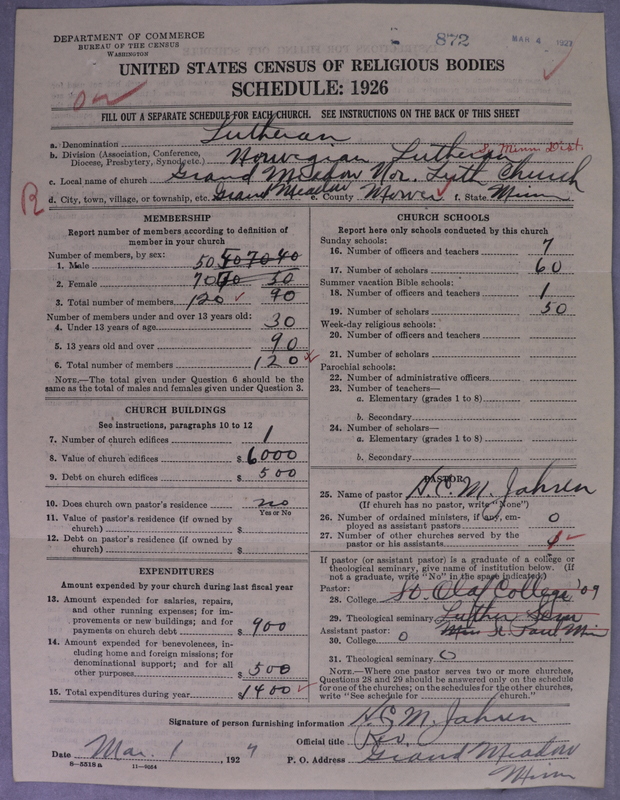 DEPARTMENT OF COMMERCE
BUREAU OF THE CENSUS
WASHINGTON
872
MAR 4 1927
UNITED STATES CENSUS OF RELIGIOUS BODIES
SCHEDULE: 1926
FILL OUT A SEPARATE SCHEDULE FOR EACH CHURCH. SEE INSTRUCTIONS ON THE BACK OF THIS SHEET
a. Denomination Lutheran
S. Minn Dist.
b. Division (Association, Conference, Diocese, Presbytery, Synod, etc.) Norwegian Lutheran
c. Local name of church Grand Meadow Nor. Luth Church
R
d. City, town, village, or township, etc. Grand Meadow e. County Mower f. State Minn
MEMBERSHIP
Report number of members according to definition of
member in your church
Number of members, by sex:
1. Male 50 50 70 40
2. Female 70 70 50
3. Total number of members 120 90
Number of members under and over 13 years old:
4. Under 13 years of age 30
5. 13 years old and over 90
6. Total number of members 120
NOTE.—The total given under Question 6 should be the
same as the total of males and females given under Question 3.
CHURCH BUILDINGS
See instructions, paragraphs 10 to 12
7. Number of church edifices 1
8. Value of church edifices $ 6000
9. Debt on church edifices $ 500
10. Does church own pastor's residence no
Yes or No
11. Value of pastor's residence (if owned by
church) $
12. Debt on pastor's residence (if owned by
church) $
EXPENDITURES
Amount expended by your church during last fiscal year
13. Amount expended for salaries, repairs,
and other running expenses; for im-
provements or new buildings; and for
payments on church debt $ 900
14. Amount expended for benevolences, in-
cluding home and foreign missions; for
denominational support; and for all
other purposes $ 500
15. Total expenditures during year $ 1400
CHURCH SCHOOLS
Report here only schools conducted by this church
Sunday schools:
16. Number of officers and teachers 7
17. Number of scholars 60
Summer vacation Bible schools:
18. Number of officers and teachers 1
19. Number of scholars 50
Week-day religious schools:
20. Number of officers and teachers
21. Number of scholars
Parochial schools:
22. Number of administrative officers
23. Number of teachers—
a. Elementary (grades 1 to 8)
b. Secondary
24. Number of scholars—
a. Elementary (grades 1 to 8)
b. Secondary
PASTOR
25. Name of pastor H. C. M. Jahren
(If church has no pastor, write "None")
26. Number of ordained ministers, if any, em-
ployed as assistant pastors 0
27. Number of other churches served by the
pastor or his assistants
If pastor (or assistant pastor) is a graduate of a college or
theological seminary, give name of institution below. (If
not a graduate, write "No" in the space indicated.)
Pastor:
28. College St. Olaf College '09
29. Theological seminary Luther Sem
Assistant pastor: St. Paul Min
30. College 0
31. Theological seminary 0
NOTE.—Where one pastor serves two or more churches,
Questions 28 and 29 should be answered only on the schedule
for one of the churches; on the schedules for the other churches,
write "See schedule for church."
Signature of person furnishing information H. C. M. Jahren
Official title Rev.
Date Mar. 1 1927 P. O. Address Grand Meadow
Minn
8-5518 a 11-9664